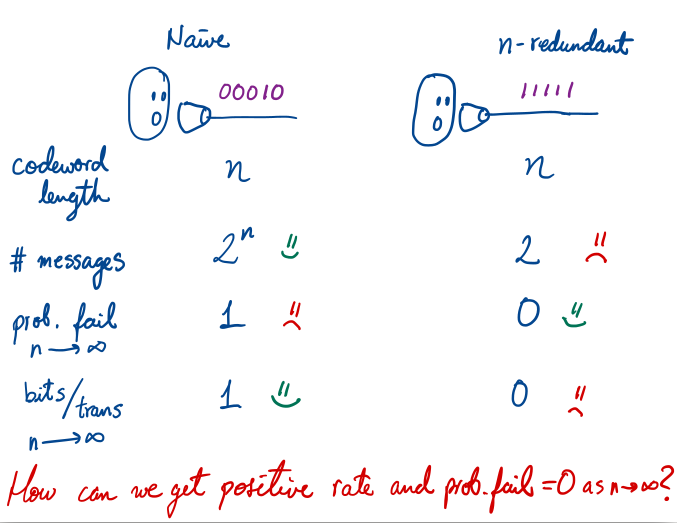 Naïve n-redundant
00010 11111
codeword length n n
# messages 2ⁿ 2
prob. fail n → ∞ 1 0
bits/trans n → ∞ 1 0
How can we get positive rate and prob. fail = 0 as n→∞?